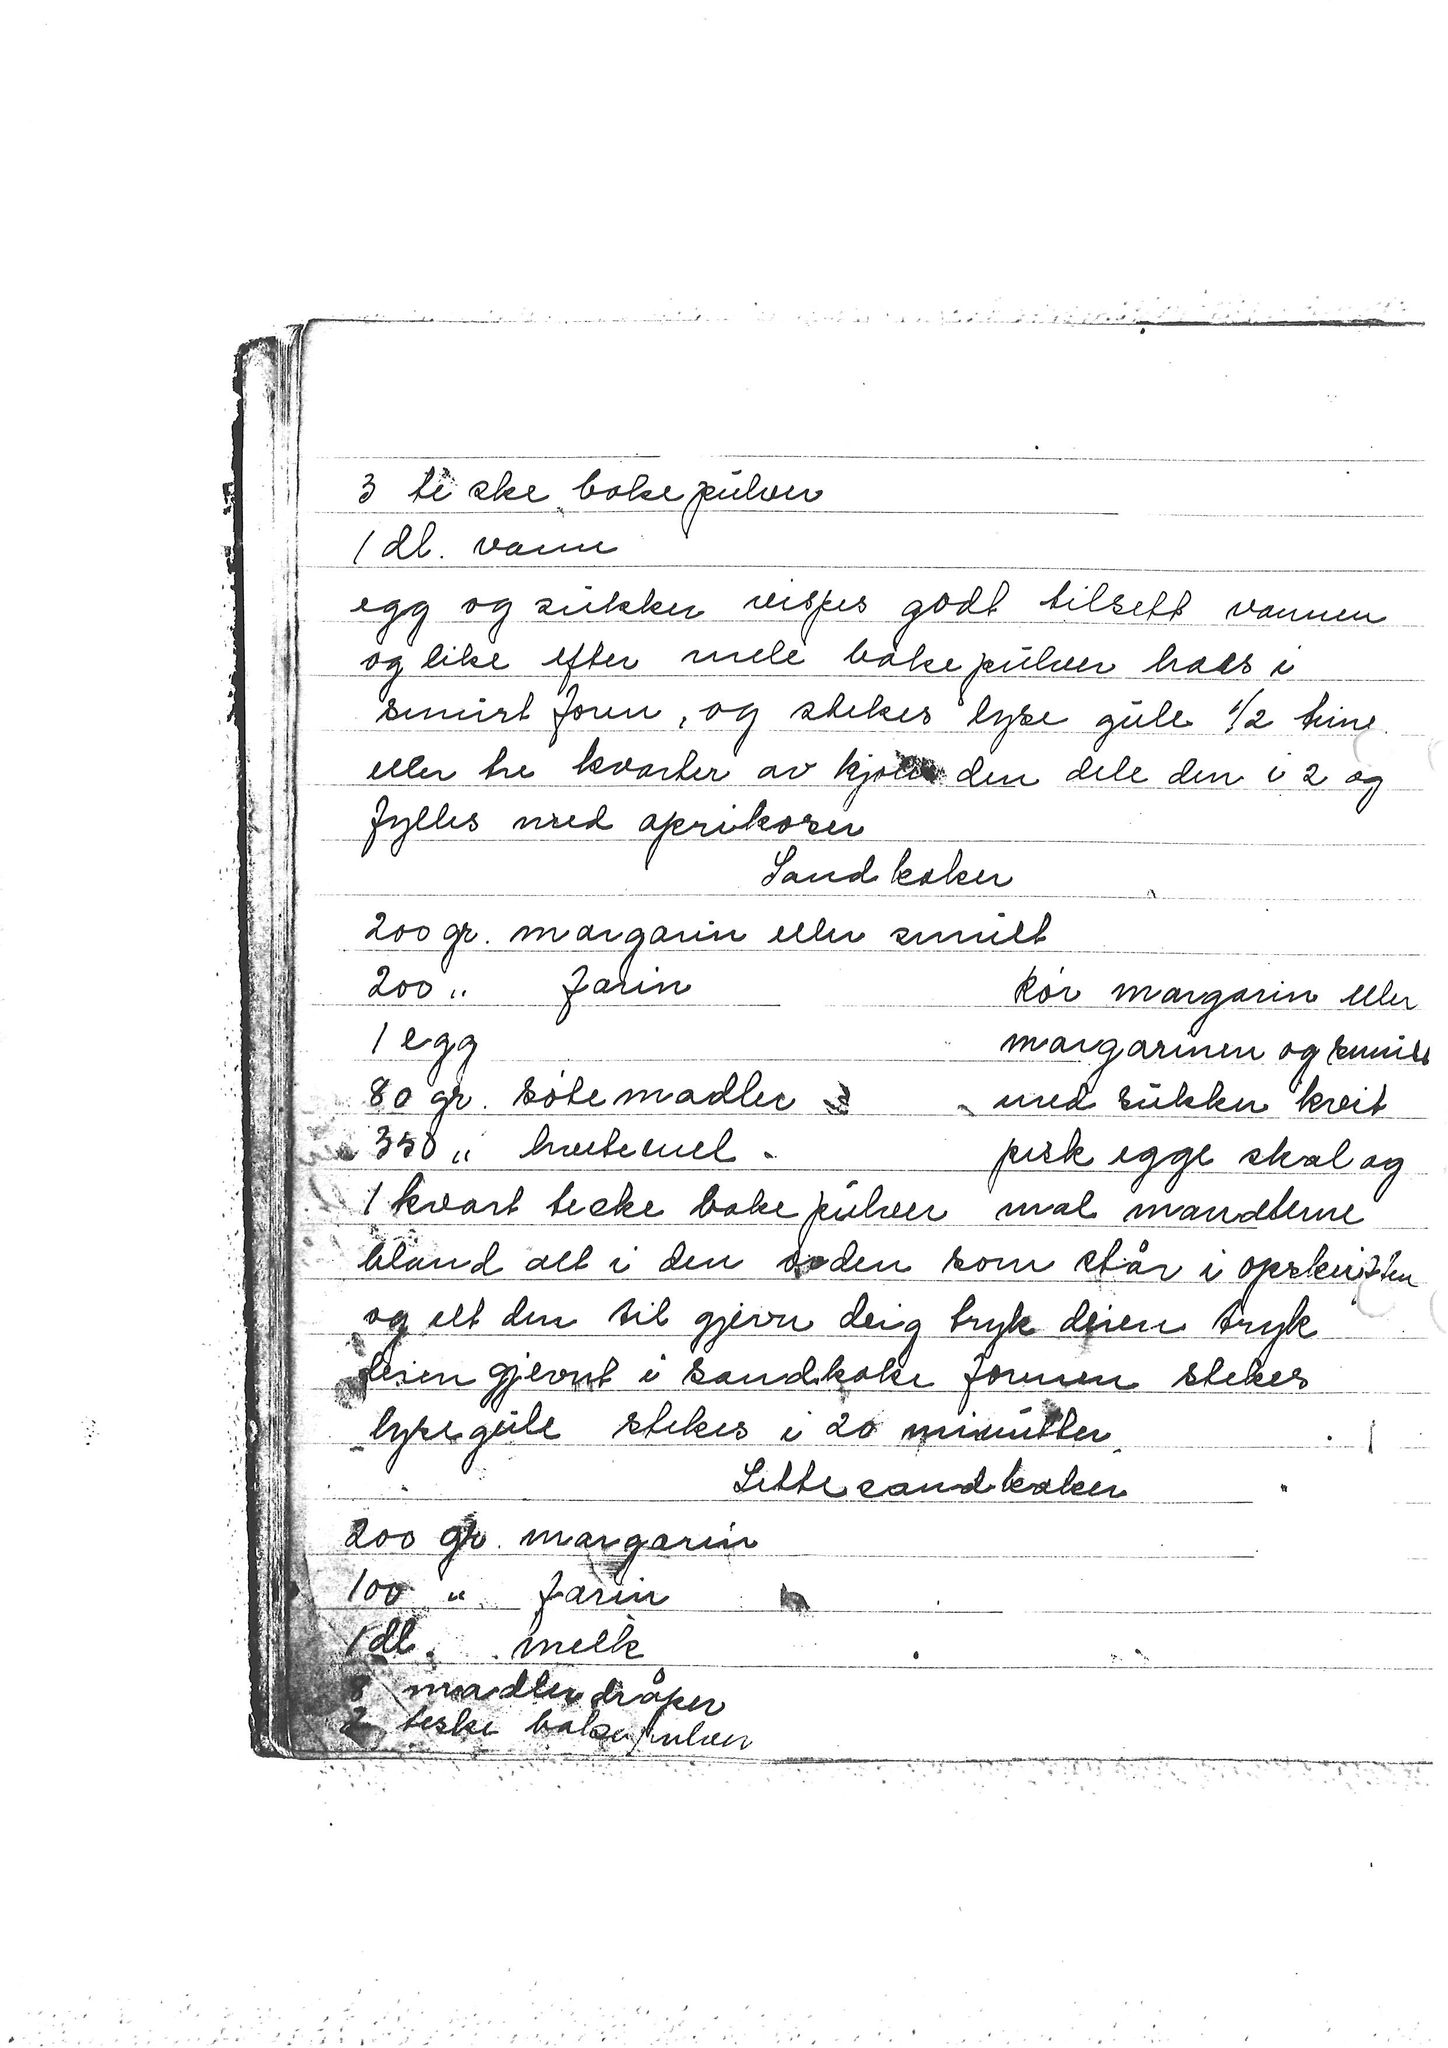 3 te ske bakepulver
1 dl. vann
egg og sukker vispes godt tilsett vannen
og like efter mele bakepulver haes i
smurt form, og stekes lyse gule 1/2 time
eller tre kvarter av kjøle den dele den i 2 og
fylles med aprikoser
Sandkaker
200 gr. margarin eller smult
200 " farin
1 egg
80 gr. søte madler
350 " hvetemel
1 kvart teske bakepulver
Rør margarin eller
margarinen og smult
med sukker kvit
pisk egge skal og
mal mandlerne
bland alt i den orden som står i opskriften
og elt den til gjevn deig tryk deien tryk
deien gjevnt i sandkake formen stekes
lysegule stekes i 20 minutter
Lette sandkaker
200 gr. margarin
100 " farin
1 dl. melk
8 madlerdråper
2 teske bakepulver